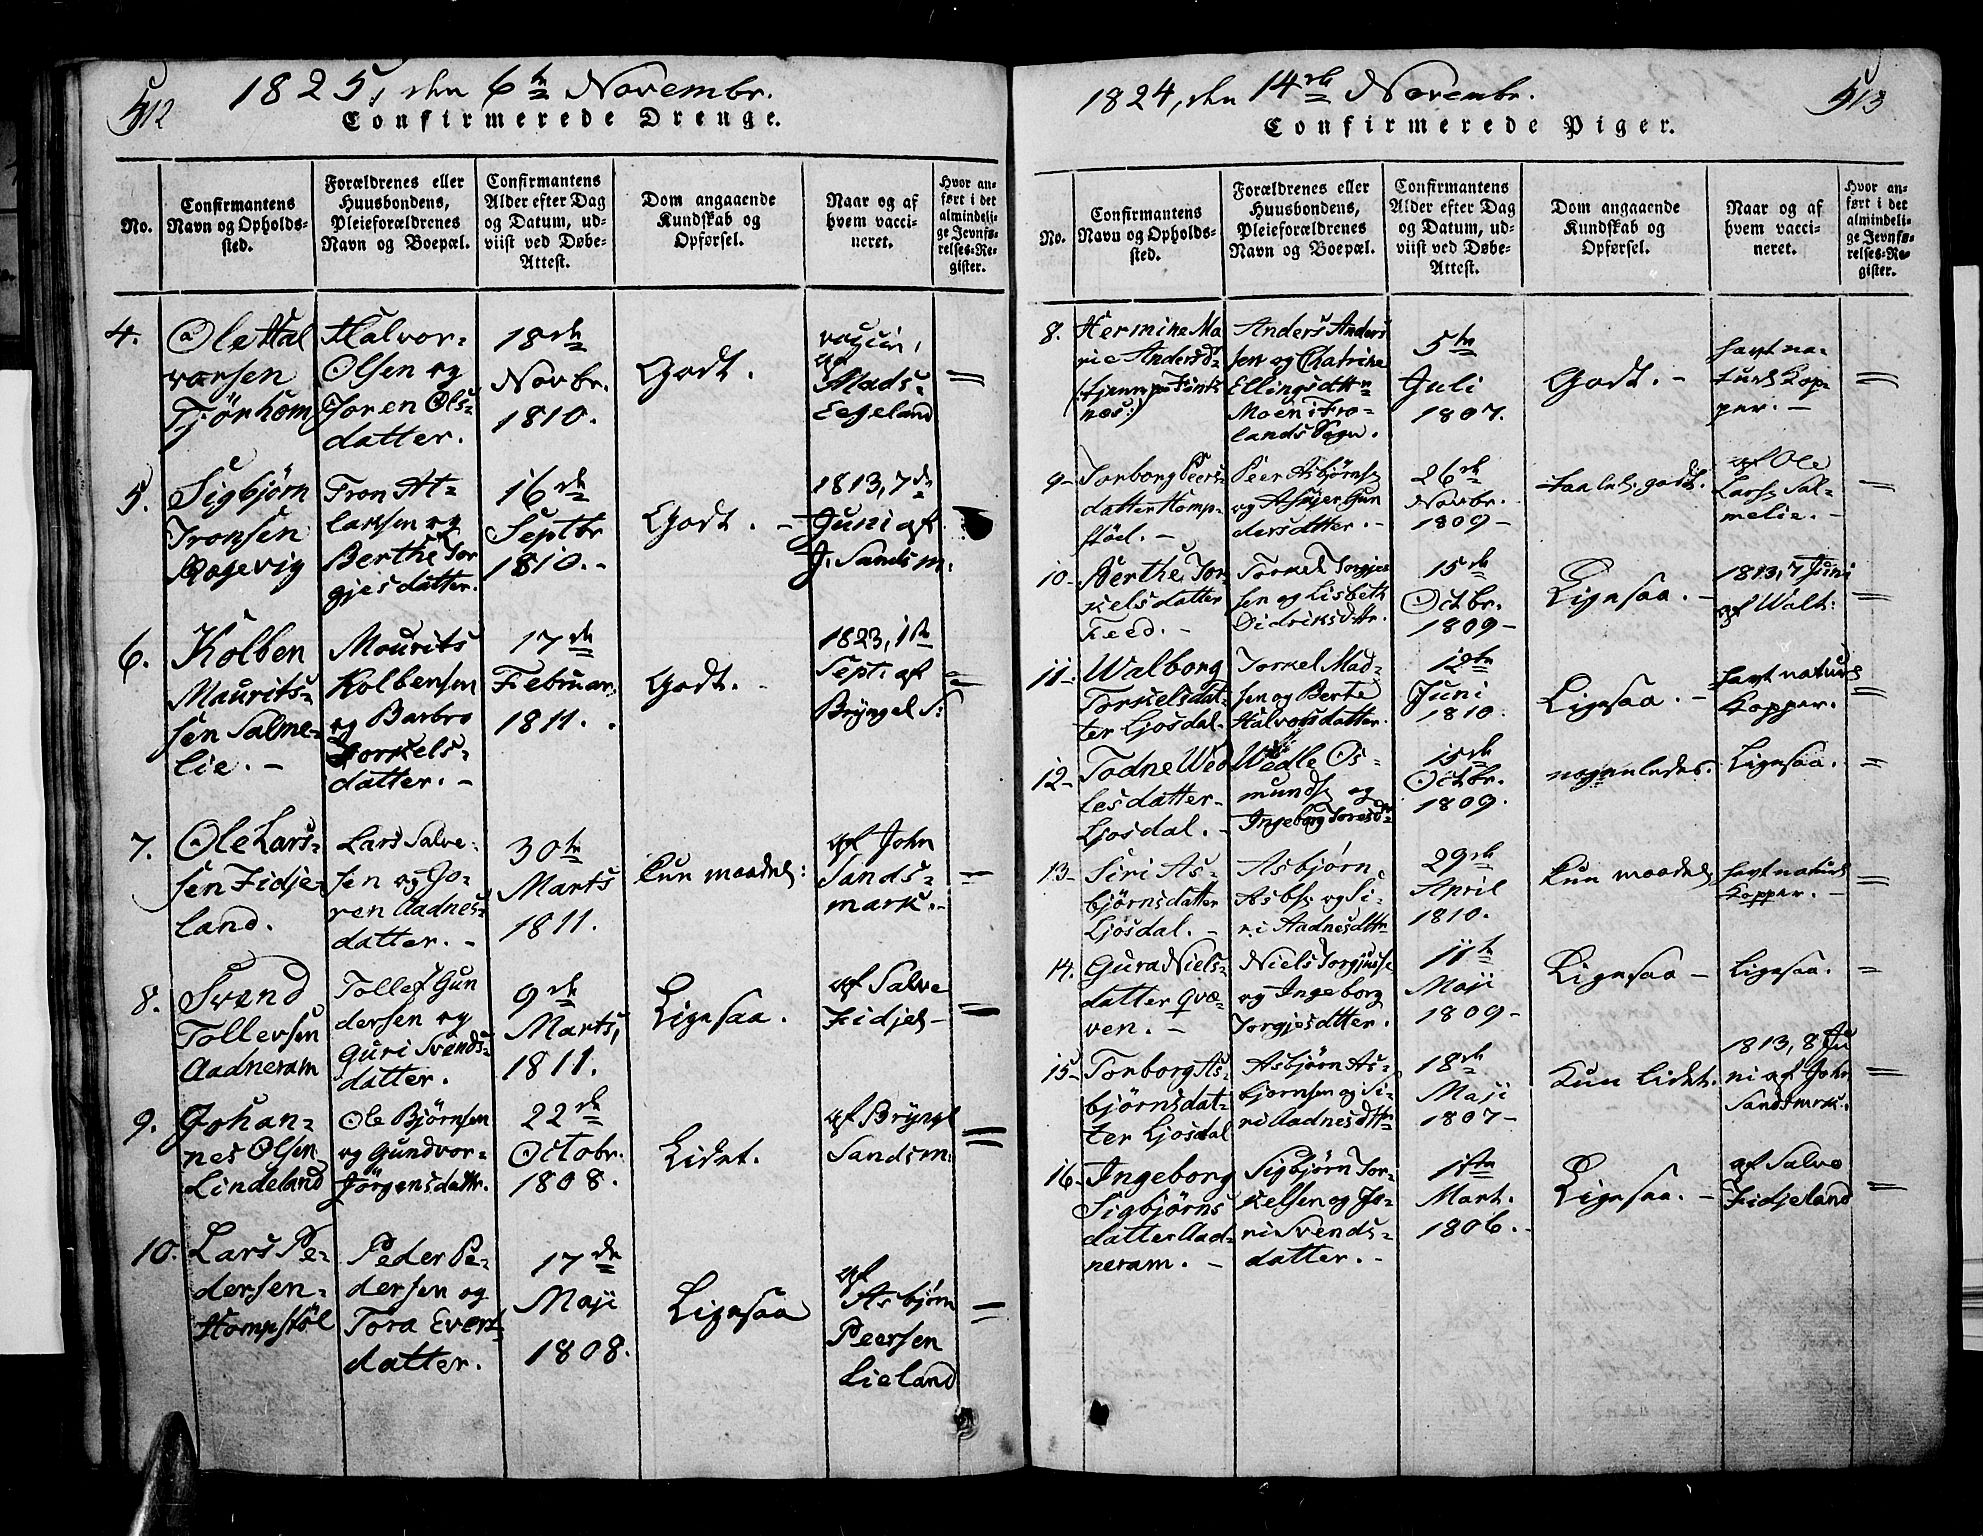 512
1825, den 6te Novembr.
Confirmerede Drenge.
No.
Confirmantens
Navn og Opholds-
sted.
Forældrenes eller
Huusbondens,
Pleieforældrenes
Navn og Boepæl.
Confirmantens
Alder efter Dag
og Datum, ud-
viist ved Døbe-
Attest.
Dom angaaende
Kundskab og
Opførsel.
Naar og af
hvem vacci-
neret.
Hvor an-
ført i det
almindeli-
ge Jevnfø-
relses-Re-
gister.
4.
Ole Hal
vorsen
Tjörhom
Halvor-
Olsen og
Joren Ols-
datter.
18de
Novbr.
1810.
Godt.
af
Mads-
Eegeland
5.
Sigbjörn
Tronsen
Tron At-
laksen og
Berthe Tor
gjesdatter.
16de
Septbr
1810.-
Godt. -
1813, 7de
Juni af
J. Sandsm.
6.
Kolben
Maurits-
sen Salme-
lie. -
Mourits
Kolbensen
og Barbro
Torkels-
datter. -
17de
Februar
1811.
Godt. -
1823, 1ste
Sept. af
Bryngel S:
7.
Ole Lars-
sen Fidje-
land.
Lars Salve-
sen og Jo-
ren Aadnes-
datter. -
30te
Marts
1811.
Kun maadel:
af John
Sands-
mark.-
8.
Svend
Tollevsen
Aadneram
Tollef Gun
dersen og
Guri Svends-
datter.
9de
Marts,
1811.
Ligesaa.
af Salve
Fidjel-
9.
Johan-
nes Olsen
Lindeland
Ole Bjørnsen
og Gundvor-
Jörgensdattr.
22de
Octobr.
1808.
Lidet.
af Bryngl
Sandsm:
10.
Lars Pe-
dersen-
Hompstöl
Peder Pe-
dersen og
Tora Evert-
datter.
17de
Maji
1808.
Ligesaa
af
Asbjørn
Peersen
Lieland
513
1824, den 14de Novembr.
Confirmerede Piger.
No.
Confirmantens
Navn og Opholds-
sted.
Forældrenes eller
Huusbondens,
Pleieforældrenes
Navn og Boepæl.
Confirmantens
Alder efter Dag
og Datum, ud-
viist ved Døbe-
Attest.
Dom angaaende
Kundskab og
Opførsel.
Naar og af
hvem vacci-
neret.
Hvor an-
ført i det
almindeli-
ge Jevnfø-
relses-Re-
gister.
8.
Hermine Ma
rie Andersd-
Anders Anders
sen og Chatrine
Ellingsdttr
Moen i Fro-
lands Sogn.
5te
Juli
1807.
Godt. -
havt na-
turl. Kop-
per. -
9-
Torborg Peers-
datter Homp-
stöd. -
Peer Asbjørns
og Asgjer Gun
dersdatter. -
26de
Novbr.
1809-
taalel: godt.
af Ole
Lars Sal-
melie. -
10-
Berthe Tor-
kelsdatter
Feed. -
Torkel Torgjes
sen og Lisbeth
Didriksdttr.
15de
Octbr.
1809-
Ligesaa. -
1813, 7 Juni
af Walt:
11-
Walborg
Torkelsdat-
ter Ljosdal.
Torkel Mad-
sen og Berte
Halvorsdatter.
12te
Juni
1810.
Ligesaa. -
havt naturl
Kopper.
12-
Todne Wed
lesdatter-
Ljosdal. -
Wedle Os-
munds og
Ingeborg Toresd-
15de
Octbr.
1809.
nogenledes.
Ligesaa.
13-
Siri As-
bjørnsdatter
Ljosdal. -
Asbjørn
Asbs og Si-
ri Aadnesdttr
29de
April
1810.
Kun maadel.
havt naturl
Kopper. -
14.
Gura Niels-
datter Qvæ-
ven. -
Niels Torgjusse
og Ingeborg
Torgjesdtter.
11te
Maji
1809-
Ligesaa -
Ligesaa.
15-
Torborg As-
bjørnsdat-
ter Ljosdal
Asbjørn As-
bjørnsen og Si-
ri Aadnesdttr
18de
Maji
1807-
Kun lidet.
1813, 8 Ju
ni af John
Sandsmrk.
16-
Ingeborg
Sigbjörns
datter Aad-
neram. -
Sigbjørn Tor-
kelsen og Jo-
ri Svends-
datter. -
1ste
Mart.
1806. -
Ligesaa. -
af Salve
Fidjeland